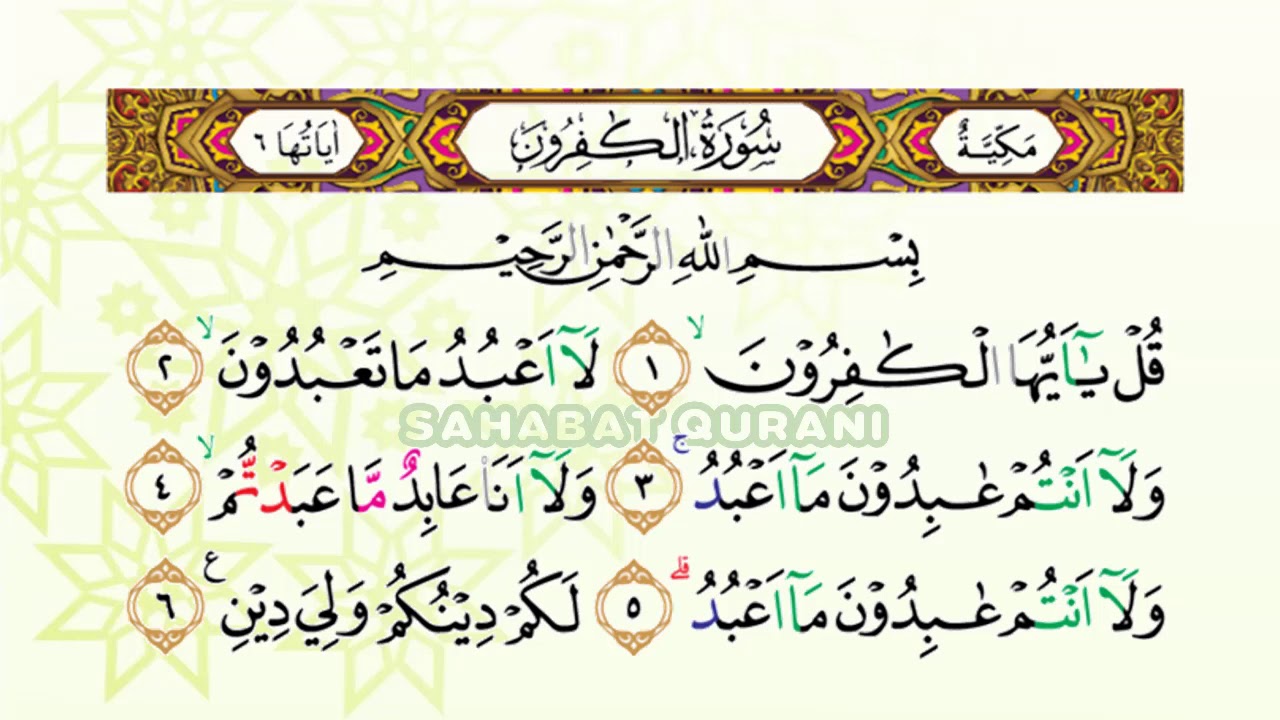 مَكِّيَّةٌ سُورَةُ الْكٰفِرُونَ اٰيَاتُهَا ٦
بِسْمِ اللّٰهِ الرَّحْمٰنِ الرَّحِيْمِ
قُلْ يٰٓاَيُّهَا الْكٰفِرُوْنَۙ ١ لَآ اَعْبُدُ مَا تَعْبُدُوْنَۙ ٢
SAHABAT QURANI
وَلَآ اَنْتُمْ عٰبِدُوْنَ مَآ اَعْبُدُۚ ٣ وَلَآ اَنَا۠ عَابِدٌ مَّا عَبَدْتُّمْۙ ٤
وَلَآ اَنْتُمْ عٰبِدُوْنَ مَآ اَعْبُدُۗ ٥ لَكُمْ دِيْنُكُمْ وَلِيَ دِيْنِ ࣖ ٦